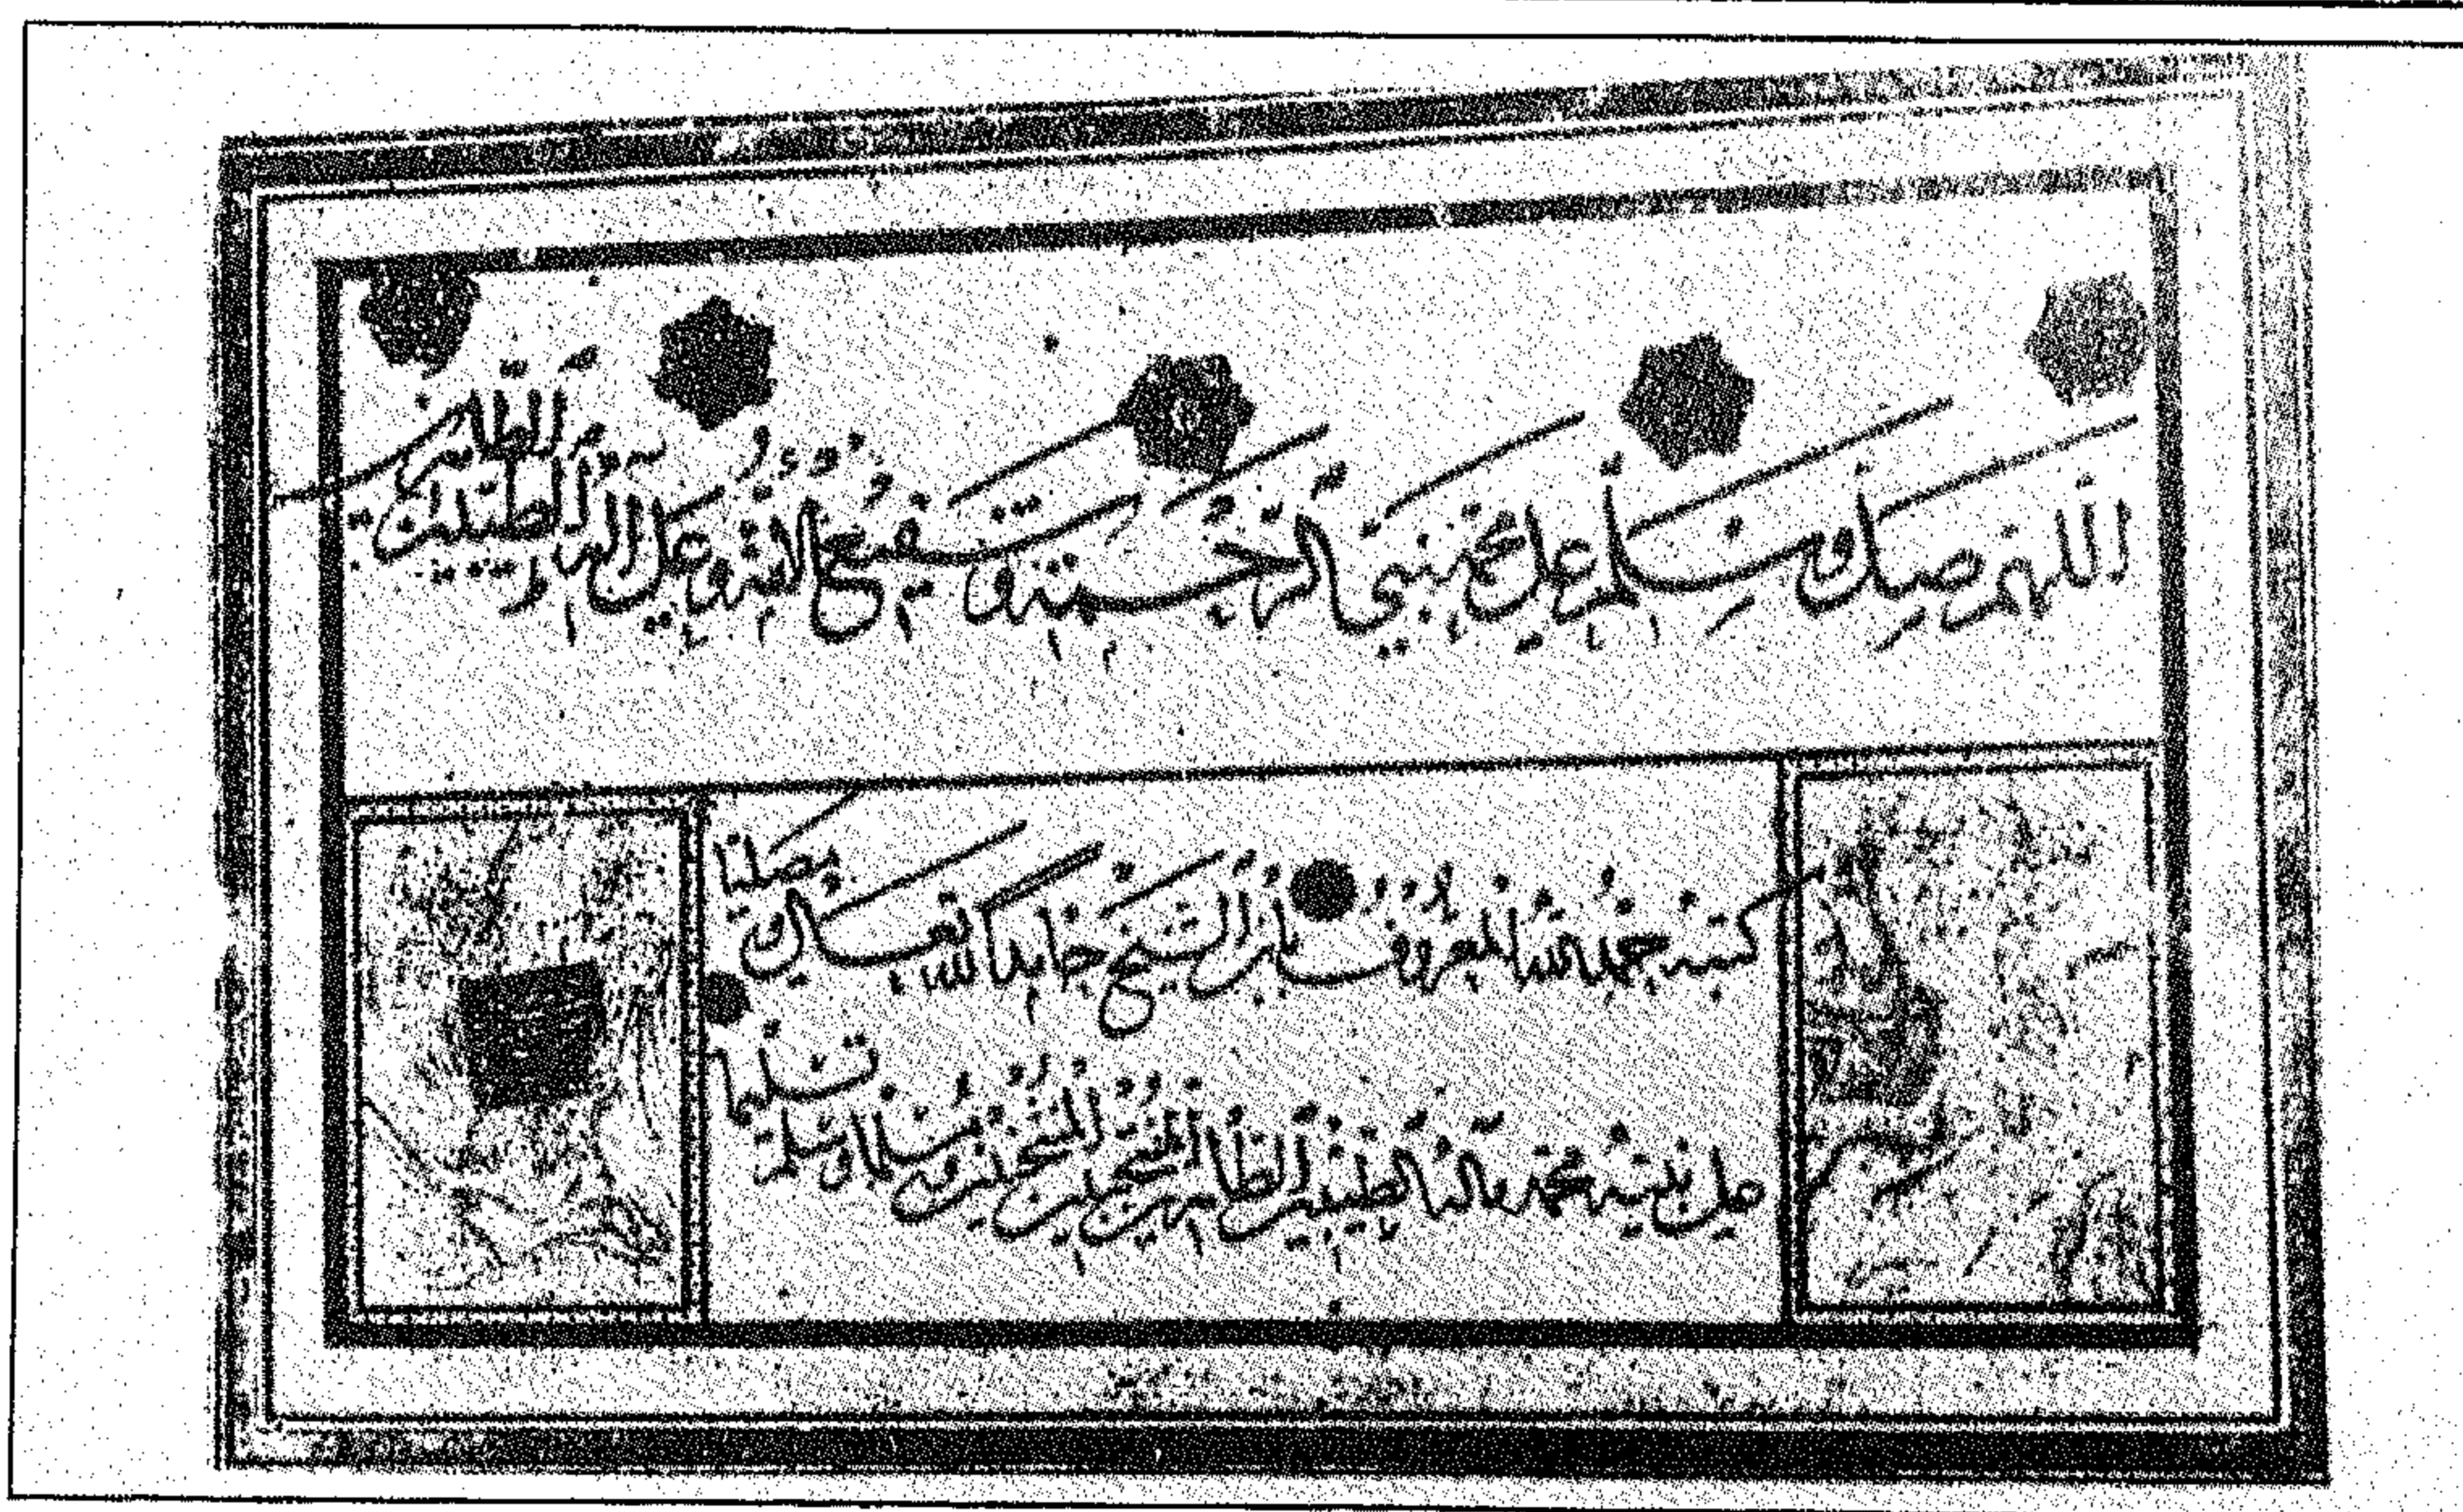 اللهم صل وسلم على محمد نبي الرحمة وشفيع الامة وعلى اله الطيبين الطاهرين
كتبه حمد الله المعروف بابن الشيخ حامدا لله تعالى ومصليا
على نبيه محمد واله الطيبين الطاهرين المنتجبين ومسلما وسلم تسليما